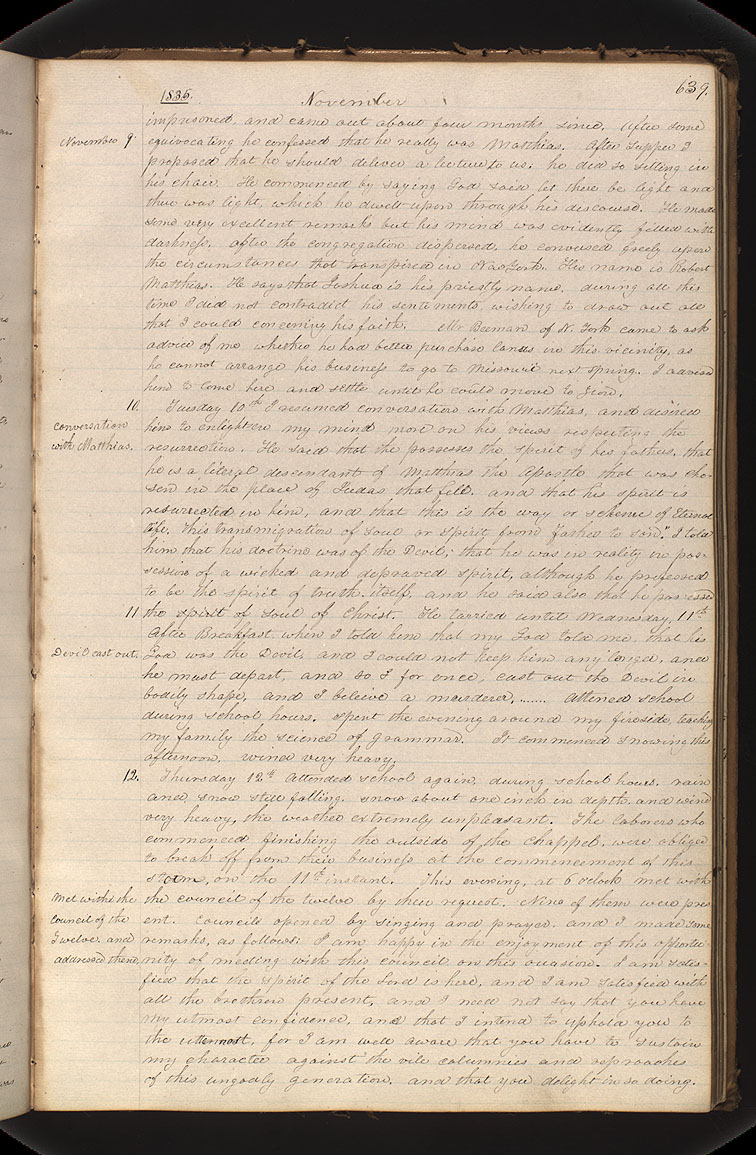 1835. November 639.
imprisoned, and came out about four months since. After some
November 9. equivocating he confessed that he really was Matthias. After supper I
proposed that he should deliver a lecture to us; he did so sitting in
his chair. He commenced by saying God said, let there be light and
there was light, which he dwelt upon through his discourse. He made
some very excellent remarks but his mind was evidently filled with
darkness. after the congregation dispersed, he conversed freely upon
the circumstances that transpired in New York. His name is Robert
Matthias. He says that Joshua is his priestly name, during all this
time I did not contradict his sentiments, wishing to draw out all
that I could concerning his faith. Mr Beeman of N. York came to ask
advice of me whether he had better purchase lands in this vicinity, as
he cannot arrange his business to go to Missouri next spring. I advised
him to come here and settle until he could move to Zion.
10. Tuesday 10th I resumed conversation with Matthias, and desired
conversation him to enlighten my mind more on his views respecting the
with Matthias. resurrection. He said that he possesses the spirit of his fathers, that
he is a literal descendant of Matthias the Apostle that was cho-
sen in the place of Judas that fell. and that his spirit is
resurrected in him, and that this is the way or scheme of Eternal
life. this transmigration of soul or spirit from father to son." I told
him that his doctrine was of the Devil; that he was in reality in pos-
session of a wicked and depraved spirit, although he professed
to be the spirit of truth itself, and he said also that he possesses
11 the spirit of soul of Christ. He tarried until Wednesday, 11th
After Breakfast when I told him that my God told me that his
Devil cast out. God was the Devil, and I could not keep him any longer, and
he must depart, and so I for once, cast out the Devil in
bodily shape, and I believe a murderer....... Attened school
during school hours. spent the evening around my fireside, teaching
my family the science of grammar. It commenced snowing this
afternoon. wind very heavy.
12. Thursday 12th Attended school again, during school hours. rain
and, snow still falling. snow about one inch in depth, and wind
very heavy, the weather extremely unpleasant. The laborers who
commenced finishing the outside of the chappel, were obliged
to break off from their business at the commencement of this
storm, on the 11th instant. This evening, at 6 oclock met with
Met with the the council of the twelve by their request. Nine of them were pres
council of the ent. Council opened by singing and prayer. and I made some
Twelve, and remarks, as follows: I am happy in the enjoyment of this opportu-
addressed them, nity of meeting with this council on this occasion. I am satis-
fied that the spirit of the Lord is here, and I am satisfied with
all the brethren present, and I need not say that you have
my utmost confidence, and that I intend to uphold you to
the uttermost, for I am well aware that you have to sustain
my character against the vile calumnies and reproaches
of this ungodly generation, and that you delight in so doing.